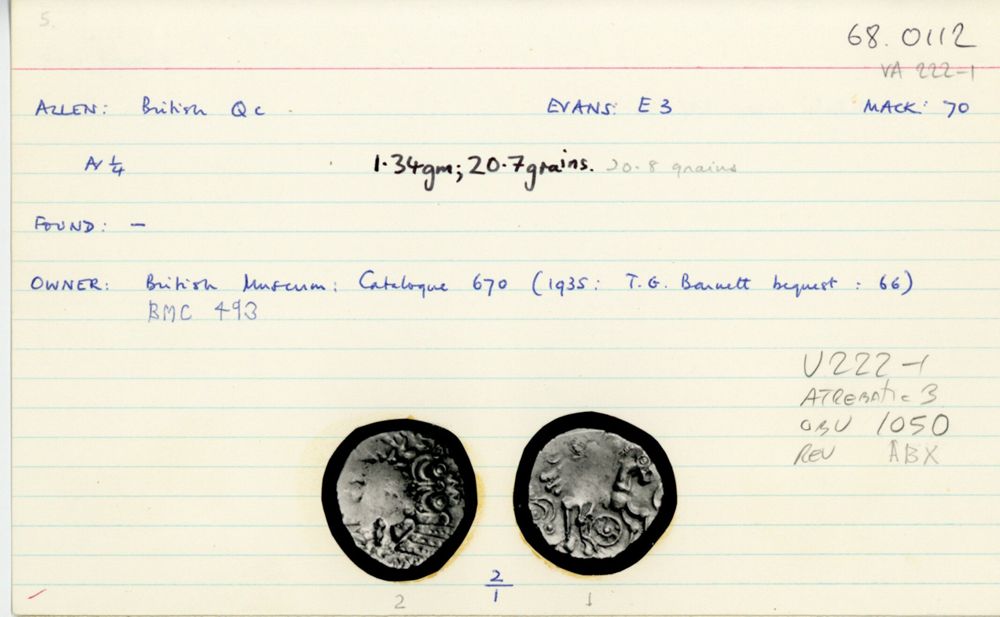 5.
68.0112
VA 222-1
ALLEN: British Qc. EVANS: E3 MACK: 70
AV 1/4 1.34gm; 20.7grains. 20.8 grains
FOUND: —
OWNER: British Museum: Catalogue 670 (1935: T.G. Barnett bequest: 66)
BMC 493
V222-1
ATREBATIC 3
OBV 1050
REV ABX
2/1
2 1